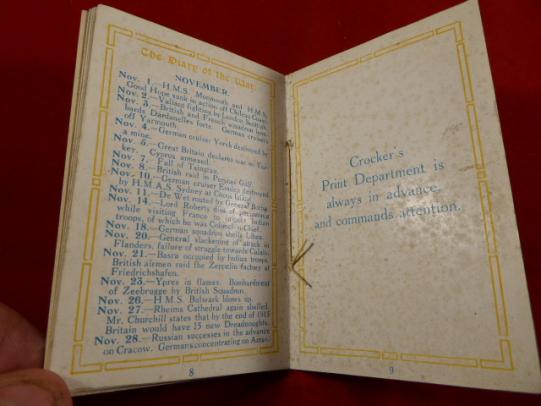 The Diary of the War.
NOVEMBER.
Nov. 1.—H.M.S. Monmouth and H.M.S.
Good Hope sunk in action off Chilean Coast.
Nov. 2.—Valiant fighting by London Scottish.
Nov. 3.—British and French squadron bom-
bards Dardanelles forts. German cruisers
off Yarmouth.
Nov. 4.—German cruiser Yorck destroyed by
a mine.
Nov. 5.—Great Britain declares war on Tur-
key. Cyprus annexed.
Nov. 7.—Fall of Tsingtau.
Nov. 8.—British raid in Persian Gulf.
Nov. 10.—German cruiser Emden destroyed
by H.M.A.S. Sydney at Cocos Island.
Nov. 11.—De Wet routed by General Botha.
Nov. 14.—Lord Roberts dies of pneumonia
while visiting France to inspect Indian
troops, of which he was Colonel in Chief.
Nov. 18.—German squadron shells Libau.
Nov. 20.—General slackening of attack in
Flanders, failure of struggle towards Calais.
Nov. 21.—Basra occupied by Indian troops.
British airmen raid the Zeppelin factory at
Friedrichshafen.
Nov. 23.—Ypres in flames. Bombardment
of Zeebrugge by British Squadron.
Nov. 26.—H.M.S. Bulwark blows up.
Nov. 27.—Rheims Cathedral again shelled.
Mr. Churchill states that by the end of 1915
Britain would have 15 new Dreadnoughts.
Nov. 28.—Russian successes in the advance
on Cracow. Germans concentrating on Arras.
8
Crocker's
Print Department is
always in advance,
and commands attention.
9